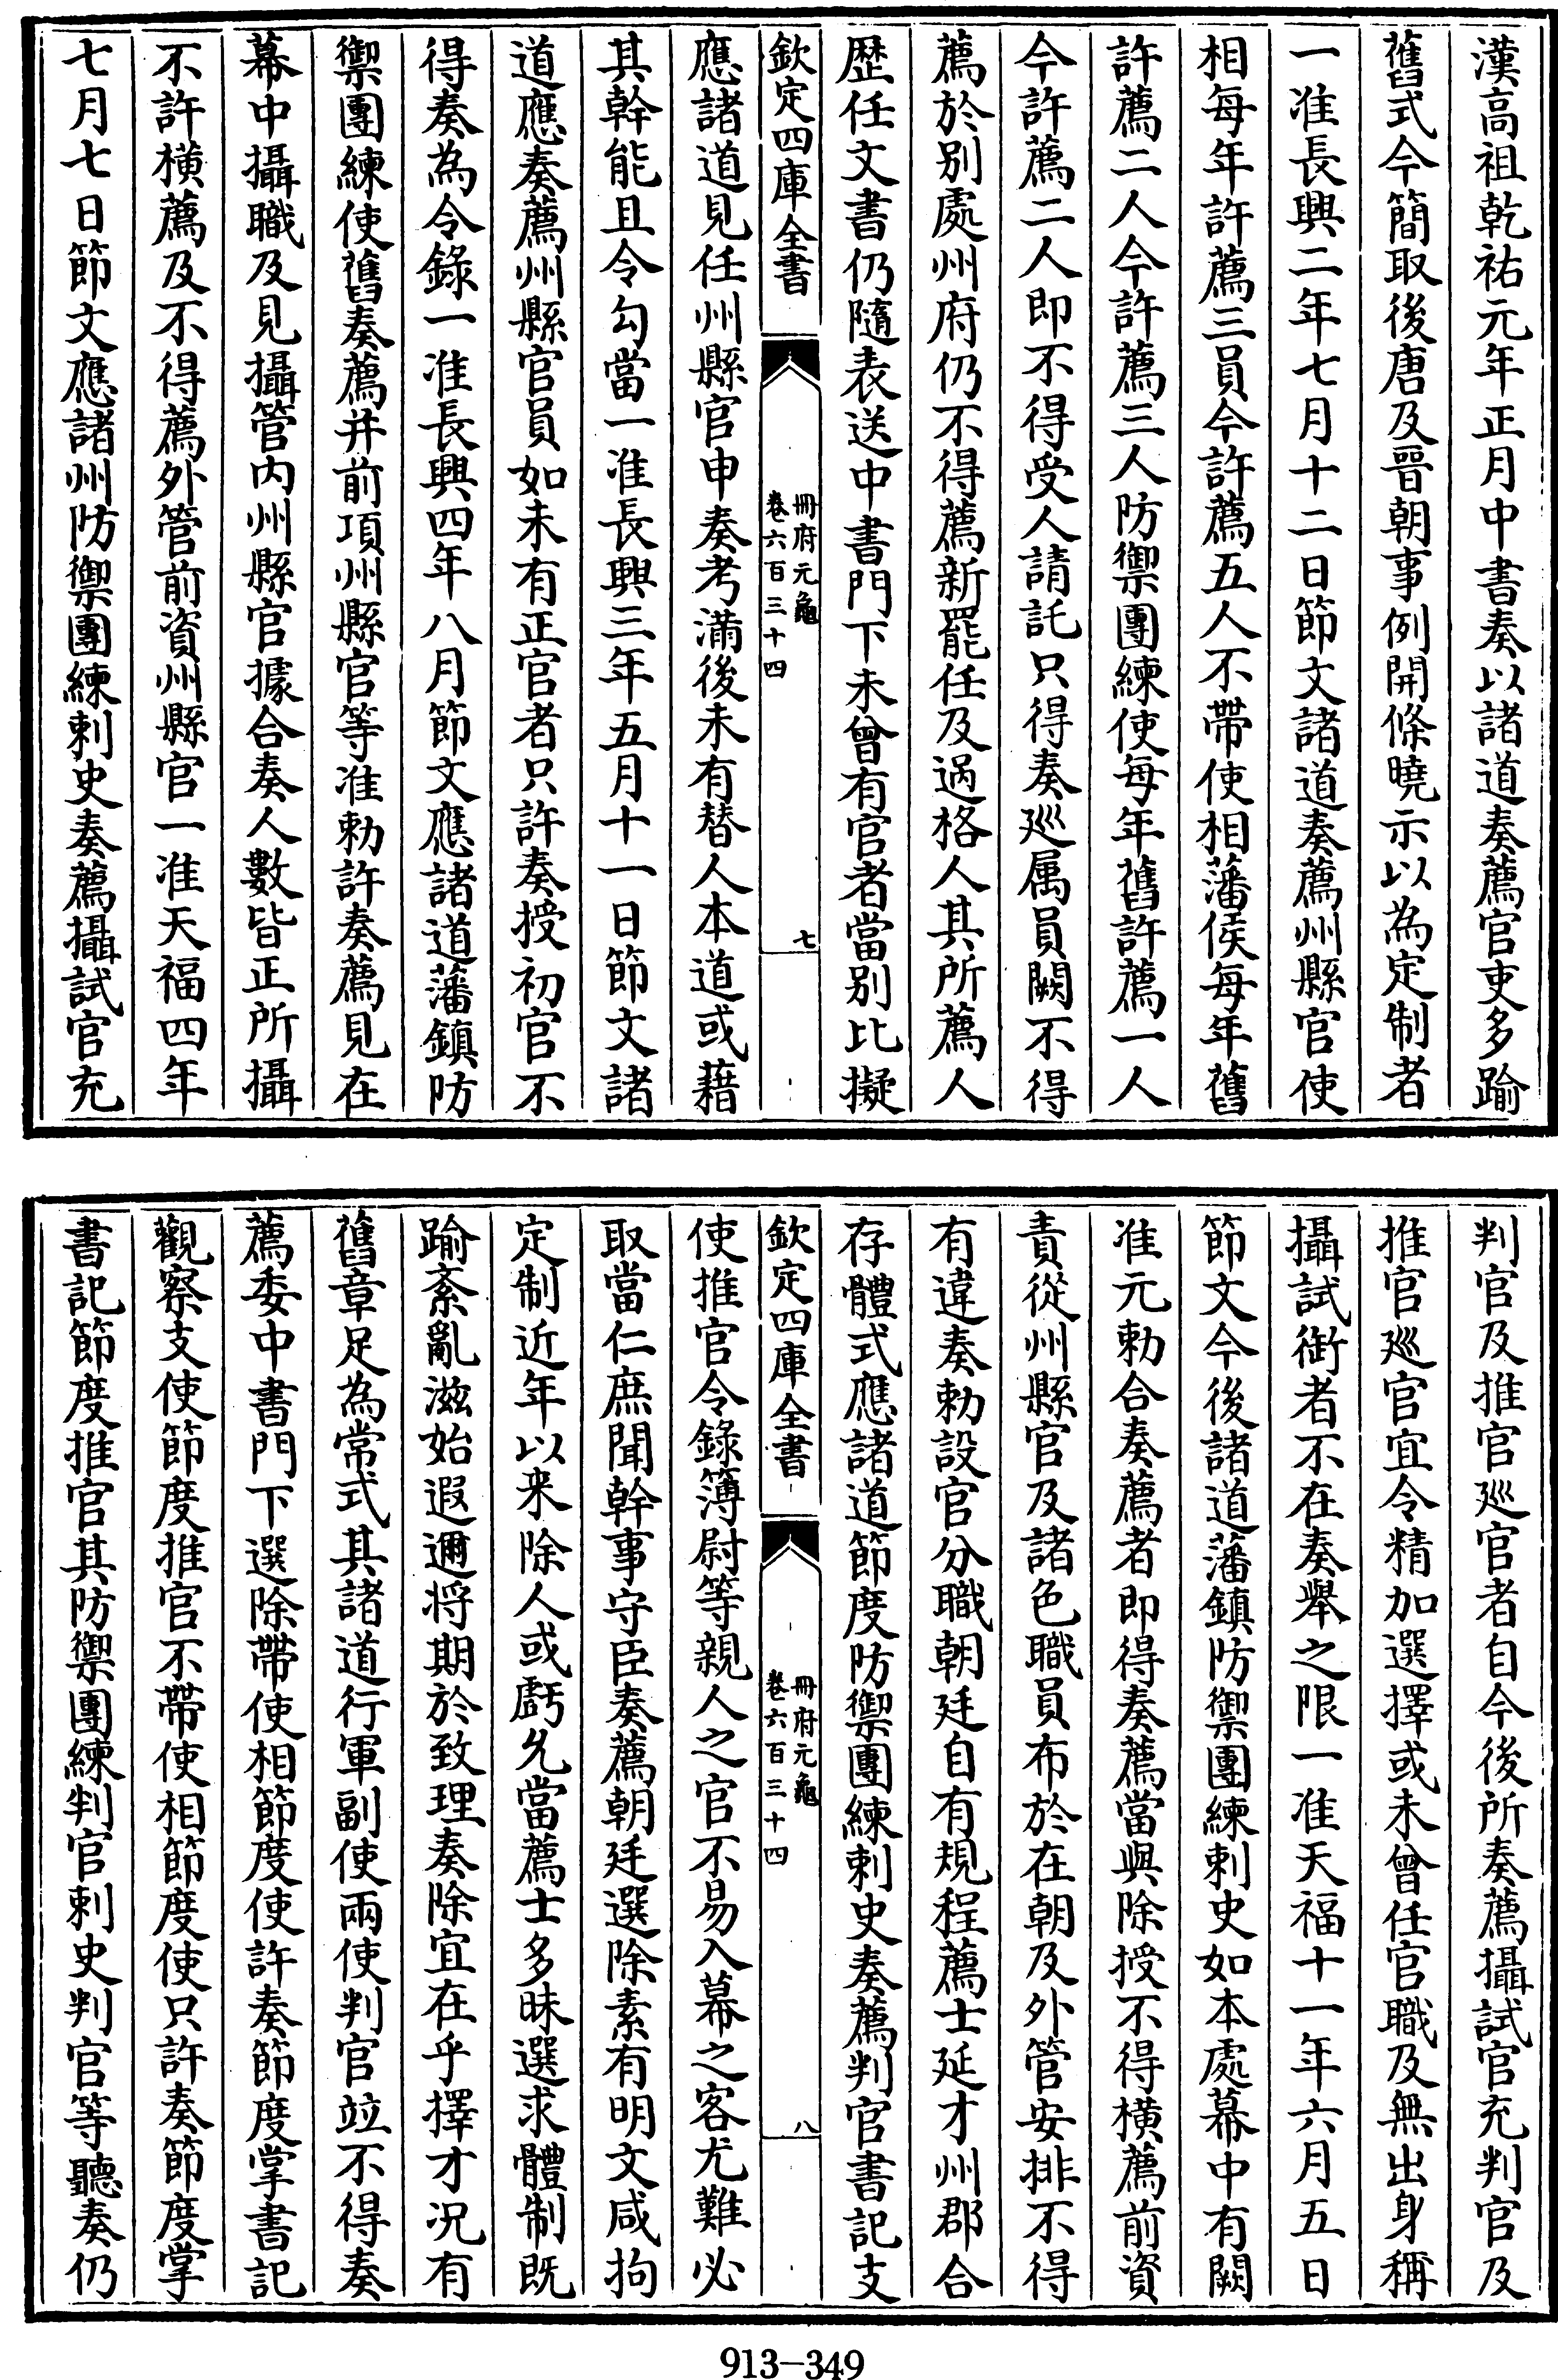 漢高祖乾祐元年正月中書奏以諸道奏薦官吏多踰
舊式今簡取後唐及晉朝事例開條曉示以為定制者
一准長興二年七月十二日節文諸道奏薦州縣官使
相每年許薦三員今許薦五人不帶使相藩侯每年舊
許薦二人今許薦三人防禦團練使每年舊許薦一人
今許薦二人即不得受人請託只得奏廵属員闕不得
薦於别處州府仍不得薦新罷任及過格人其所薦人
歴任文書仍隨表送中書門下未曾有官者當别比擬
欽定四庫全書
冊府元龜
卷六百三十四
七
應諸道見任州縣官申奏考滿後未有替人本道或藉
其幹能且令勾當一准長興三年五月十一日節文諸
道應奏薦州縣官員如未有正官者只許奏授初官不
得奏為令錄一准長興四年八月節文應諸道藩鎮防
禦團練使舊奏薦并前項州縣官等准勅許奏薦見在
幕中攝職及見攝管内州縣官據合奏人數皆正所攝
不許橫薦及不得薦外管前資州縣官一准天福四年
七月七日節文應諸州防禦團練刺史奏薦攝試官充
判官及推官廵官者自今後所奏薦攝試官充判官及
推官廵官宜令精加選擇或未曾任官職及無出身稱
攝試銜者不在奏舉之限一准天福十一年六月五日
節文今後諸道藩鎮防禦團練刺史如本處幕中有闕
准元勅合奏薦者即得奏薦當與除授不得橫薦前資
責從州縣官及諸色職員布於在朝及外管安排不得
有違奏勅設官分職朝廷自有規程薦士延才州郡合
存體式應諸道節度防禦團練刺史奏薦判官書記支
欽定四庫全書
冊府元龜
卷六百三十四
八
使推官令錄簿尉等親人之官不易入幕之客尤難必
取當仁庶聞幹事守臣奏薦朝廷選除素有明文咸拘
定制近年以来除人或虧久當薦士多昧選求體制既
踰紊亂滋始遐邇将期於致理奏除宜在乎擇才况有
舊章足為常式其諸道行軍副使兩使判官竝不得奏
薦委中書門下選除帶使相節度使許奏節度掌書記
觀察支使節度推官不帶使相節度使只許奏節度掌
書記節度推官其防禦團練判官刺史判官等聽奏仍
913-349